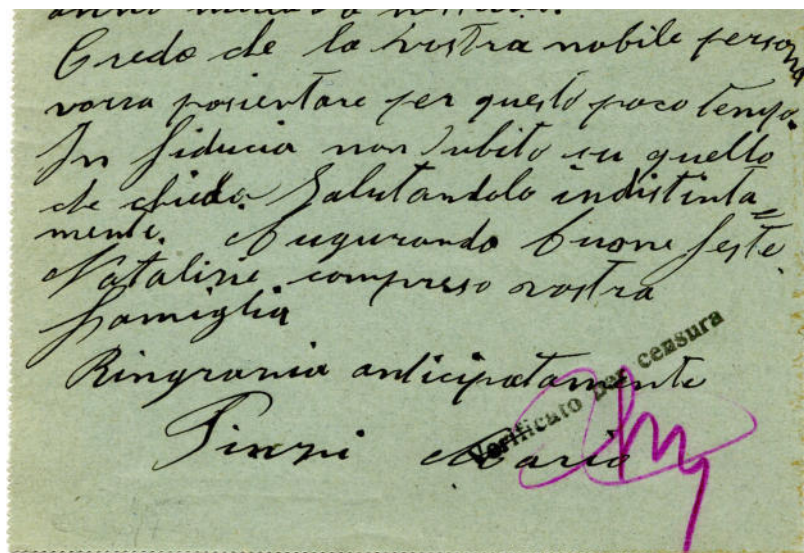 Credo che la vostra nobile persona
vorra pasientare per questo poco tempo.
In fiducia non dubito su quello
che chiedo. Salutandolo indistinta=
mente. Augurando buone feste
Nataline compreso vostra
famiglia
Ringrazia anticipatamente
Verificato per censura
Pinzi Mario